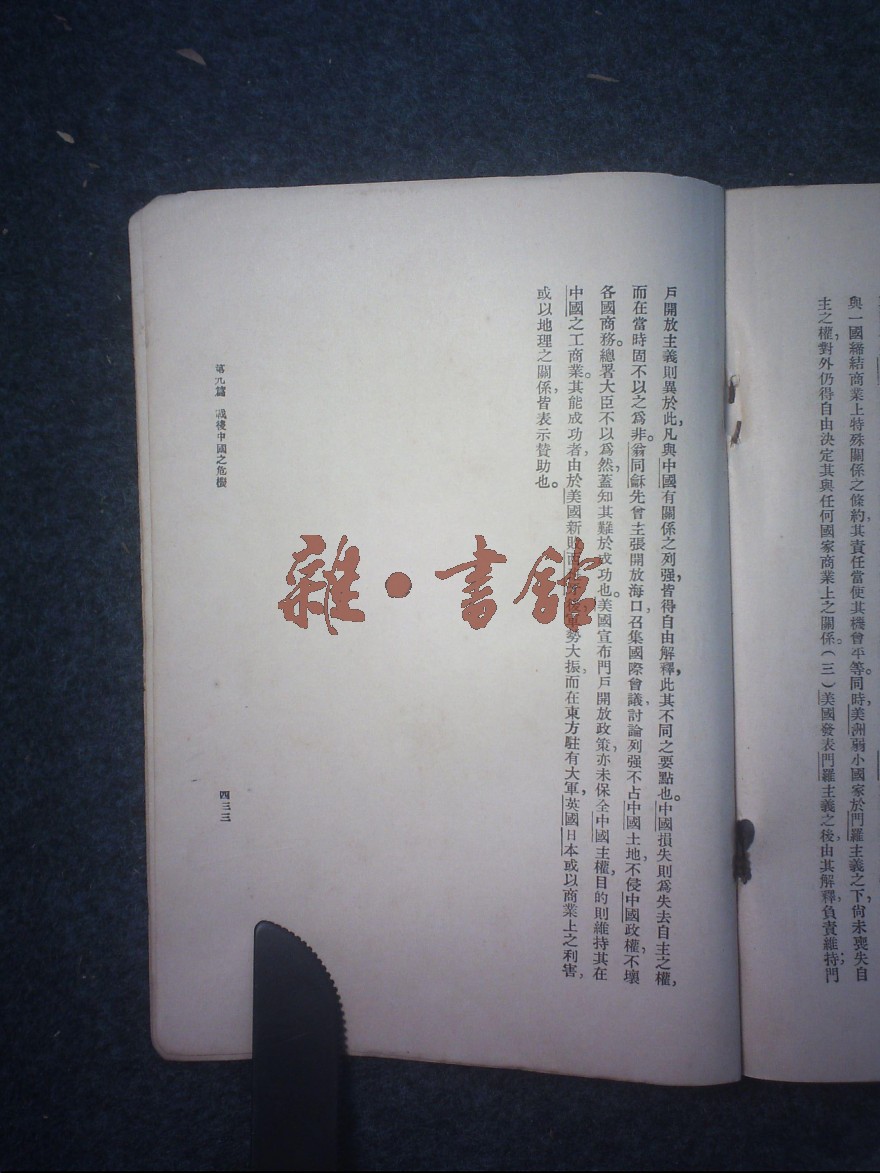 與一國締結商業上特殊關係之條約,其責任當使其機會平等。同時,美洲弱小國家於門羅主義之下,尙未喪失自
主之權,對外仍得自由決定其與任何國家商業上之關係。(三)美國發表門羅主義之後,由其解釋,負責維持;門
戶開放主義則異於此,凡與中國有關係之列强,皆得自由解釋,此其不同之要點也。中國損失則爲失去自主之權,
而在當時固不以之爲非。翁同龢先曾主張開放海口,召集國際會議,討論列强不占中國土地,不侵中國政權,不壞
各國商務。總署大臣不以爲然,蓋知其難於成功也。美國宣布門戶開放政策,亦未保全中國主權,目的則維持其在
中國之工商業。其能成功者,由於美國新敗西 勢大振,而在東方駐有大軍,英國日本或以商業上之利害,
或以地理之關係,皆表示贊助也。
第九篇 戰後中國之危機
四三三
雜·書館